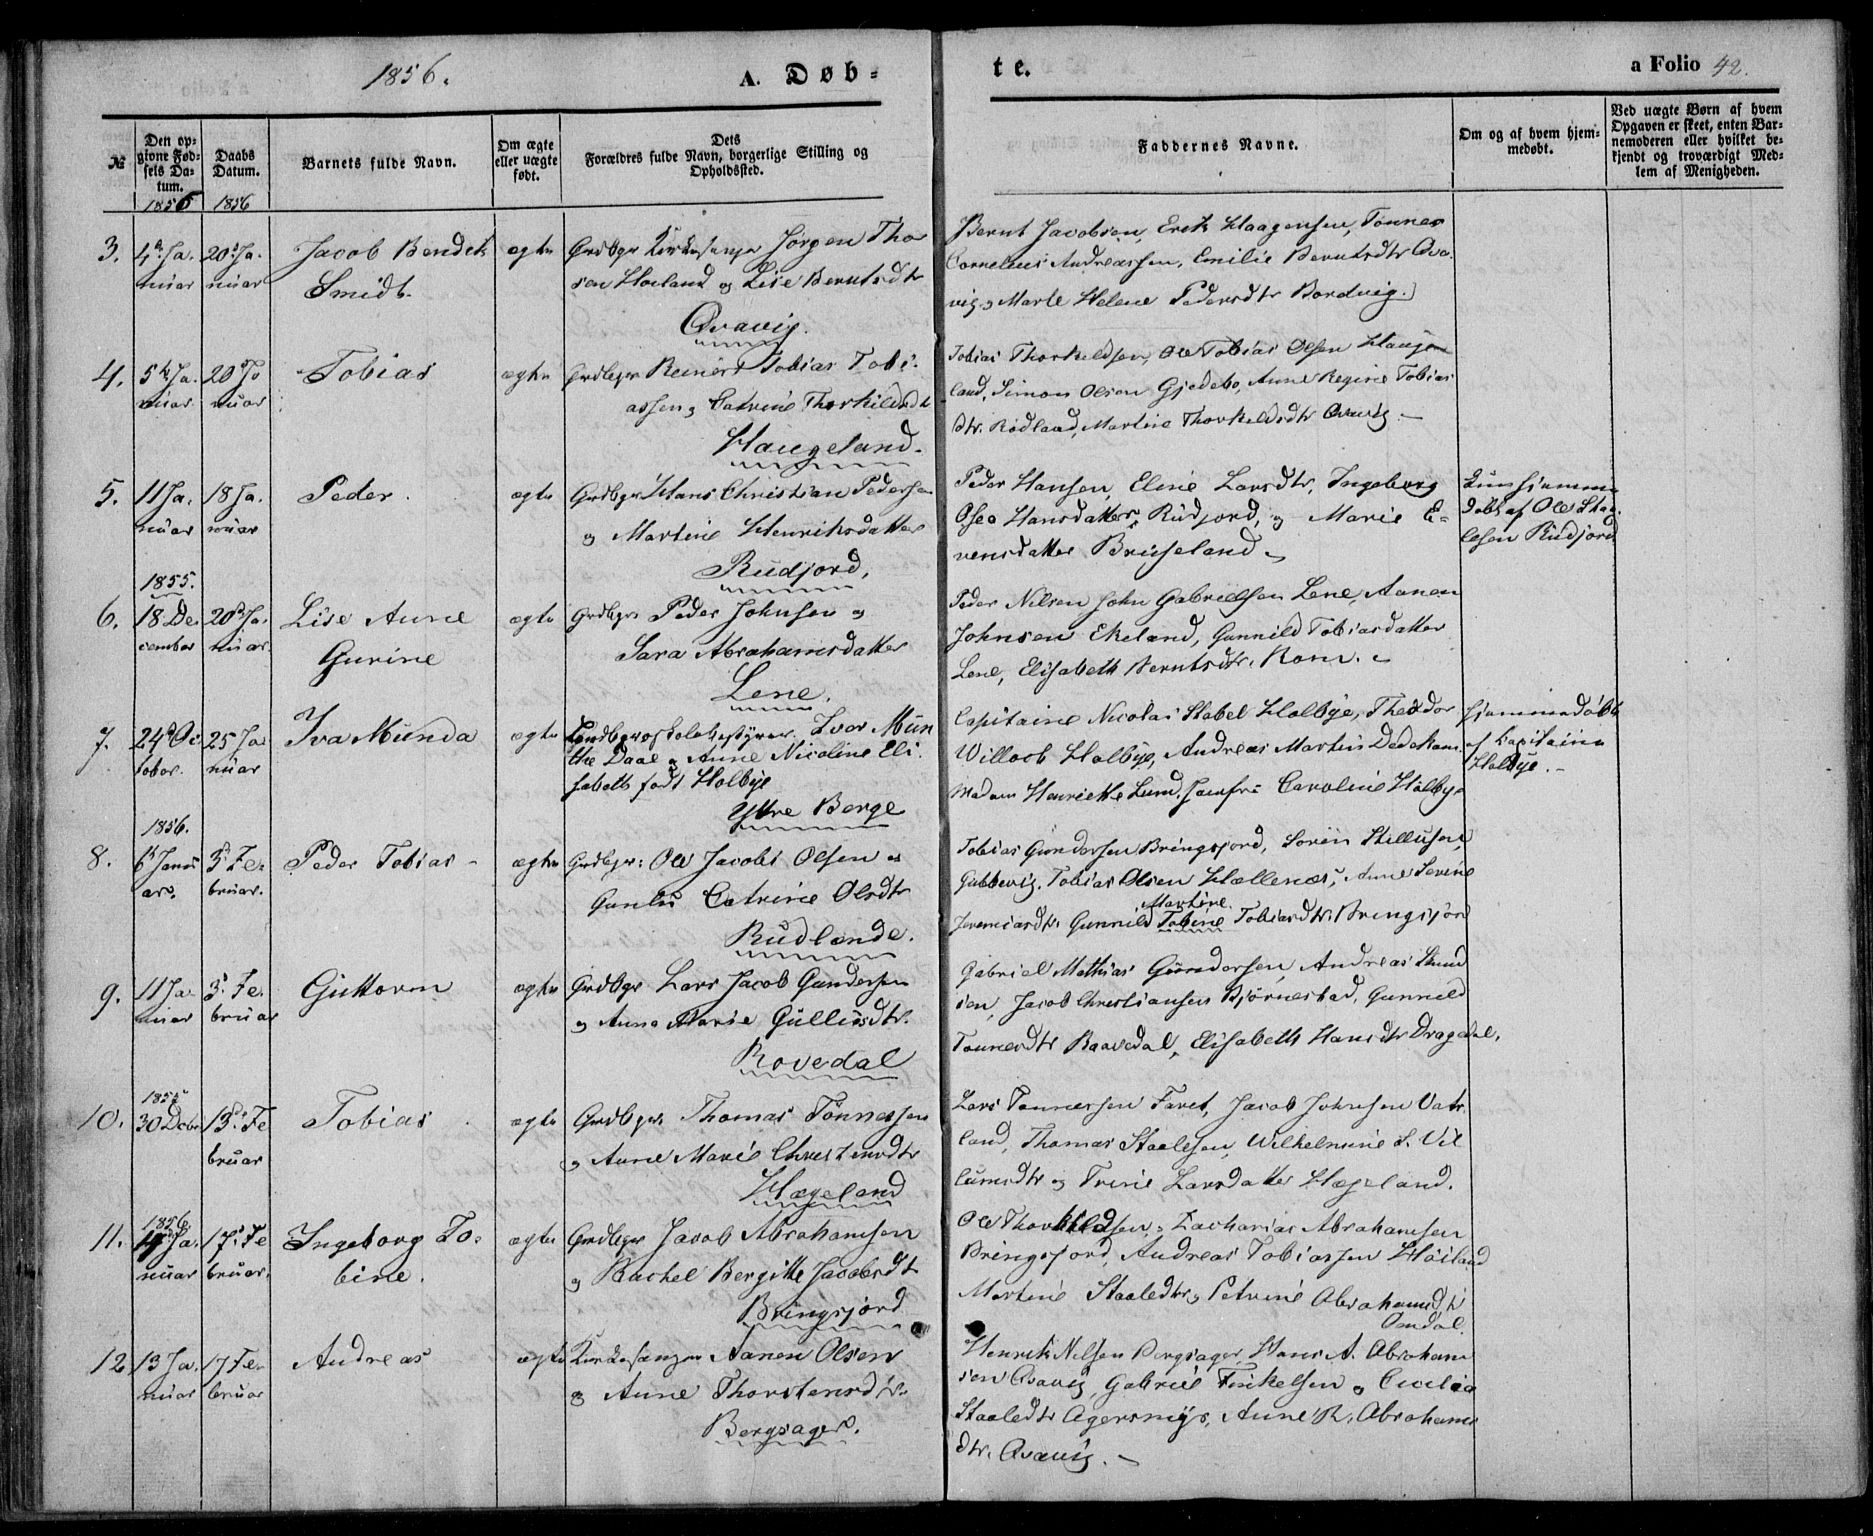 1856.
A. Døb-
te.
a Folio 42.
№
Den op-
givne Fød-
sels Da-
tum.
Daabs
Datum.
Barnets fulde Navn.
Om ægte
eller uægte
født.
Dets
Forældres fulde Navn, borgerlige Stilling og
Opholdssted.
Faddernes Navne.
Om og af hvem hjem-
medøbt.
Ved uægte Børn af hvem
Opgaven er skeet, enten Bar-
nemoderen eller hvilket be-
kjendt og troværdigt Med-
lem af Menigheden.
1856
1856
3.
4de Ja-
nuar
20de Ja-
nuar
Jacob Bendek
Smidt.
ægte
Grdbgr Kirkesanger Jørgen Thor
sen Høeland og Lise Berntsdtr
Qvavig.
Bernt Jacobsen, Erik Haagensen, Tønnes
Cornelius Andreassen, Emilie Berntsdtr Qva-
vig og Marte Helene Pedersdtr Bordvig.
4.
5te Ja-
nuar
20de Ja
nuar
Tobias
ægte
Grdbgr Reinert Tobias Tobi-
assen og Catrine Thorkildsdt
Haugeland.
Tobias Thorkeldsen, Ole Tobias Olsen Hauge
land, Simon Olsen Gjedebo, Anne Regine Tobias
dtr. Rødland, Martine Thorkeldsdtr Qvavig. —
5.
11 Ja-
nuar
18 Ja-
nuar
Peder.
ægte
Grdbgr Hans Christian Pedersen
og Martine Henriksdatter
Rudjord,
Peder Hansen, Eline Larsdtr, Ingeborg
Osea Hansdatter Rudjord, og Marie E-
vensdatter Briseland.
hjemme
døbt af Ole Staa-
lesen Rudjord
1855.
6.
18 De-
cember
20de Ja-
nuar
Lise Anne
Gurine
ægte
Grdbgr Peder Johnsen og
Sara Abrahamsdatter
Lene.
Peder Nilsen John Gabrielsen Lene, Aanen
Johnsen Ekeland, Gunnild Tobiasdatter
Lene, Elisabeth Berntsdtr. Rom.
7.
24de Oc
tober.
25 Ja-
nuar
Iva Munda
ægte
Landbrugsskolebestyrer Ivar Mun
the Daae og Anne Nicoline Eli-
sabeth født Holbye
Yttre Berge
Capitaine Nicolai Stabel Holbye, Theodor
Willoch Holbye, Andreas Martin Dedekam.
Madam Henriette Lund, Jomfru Caroline Holbye
hjemmedøbt
af Kapitaine
Holbye. —
1856.
8.
6te Janu
ar.
3de Fe-
bruar.
Peder Tobias
ægte
Grdbgr: Ole Jacob Olsen og
Gunlu Catrine Olsdtr
Rudlande.
Tobias Gundersen Bringsjord, Søren Stillufsen
Gubbevig. Tobias Olsen Hællenæs, Anne Serine
Jeremiasdtr Gunnild Tobine Tobiasdtr. Bringsjord
Martine.
9.
11 Ja-
nuar
3de Fe-
bruar
Guttorm
ægte
Grdbgr Lars Jacob Gundersen
og Anna Marie Gullicksdtr.
Rovedal
Gabriel Mathias Gundersen, Andreas
sen, Jacob Christiansen Bjørnestad, Gunnild
Tønnesdtr Raavedal, Elisabeth Hansdtr Dragedal.
1855
10.
30 Decbr
13de Fe
bruar
Tobias
ægte
Grdbgr. Thomas Tønnessen
og Anne Marie Christensdtr
Hægeland
Lars Tønnessen Faret, Jacob Johnsen Vats
land, Thomas Staalesen, Wilhelmine S. Vil
lumsdtr og Trine Larsdatter Hægeland.
1856
11.
Ja-
nuar
17de Fe
bruar.
Ingeborg To-
bine.
ægte
Grdbgr Jacob Abrahamsen
og Rachel Bergitte Jacobsdt
Bringsjord
Ole Thorkildsen, Zacharias Abrahamsen
Bringsjord, Andreas Tobiassen Høiland
Martine Staaledtr, Petrine Abrahamsdtr
Omdal.
12
13 Ja-
nuar
17 Fe-
bruar
Andreas
ægte
Kirkesanger Aanen Olsen
og Anne Thorstensdtr.
Bergsager.
Henrik Nilsen Bergsager, Hans A. Abraham
sen Qvavig, Gabriel Terkelsen og Cecilia
Staaledtr Agersmyr, Anne R. Abrahams
dtr. Qvavig. —